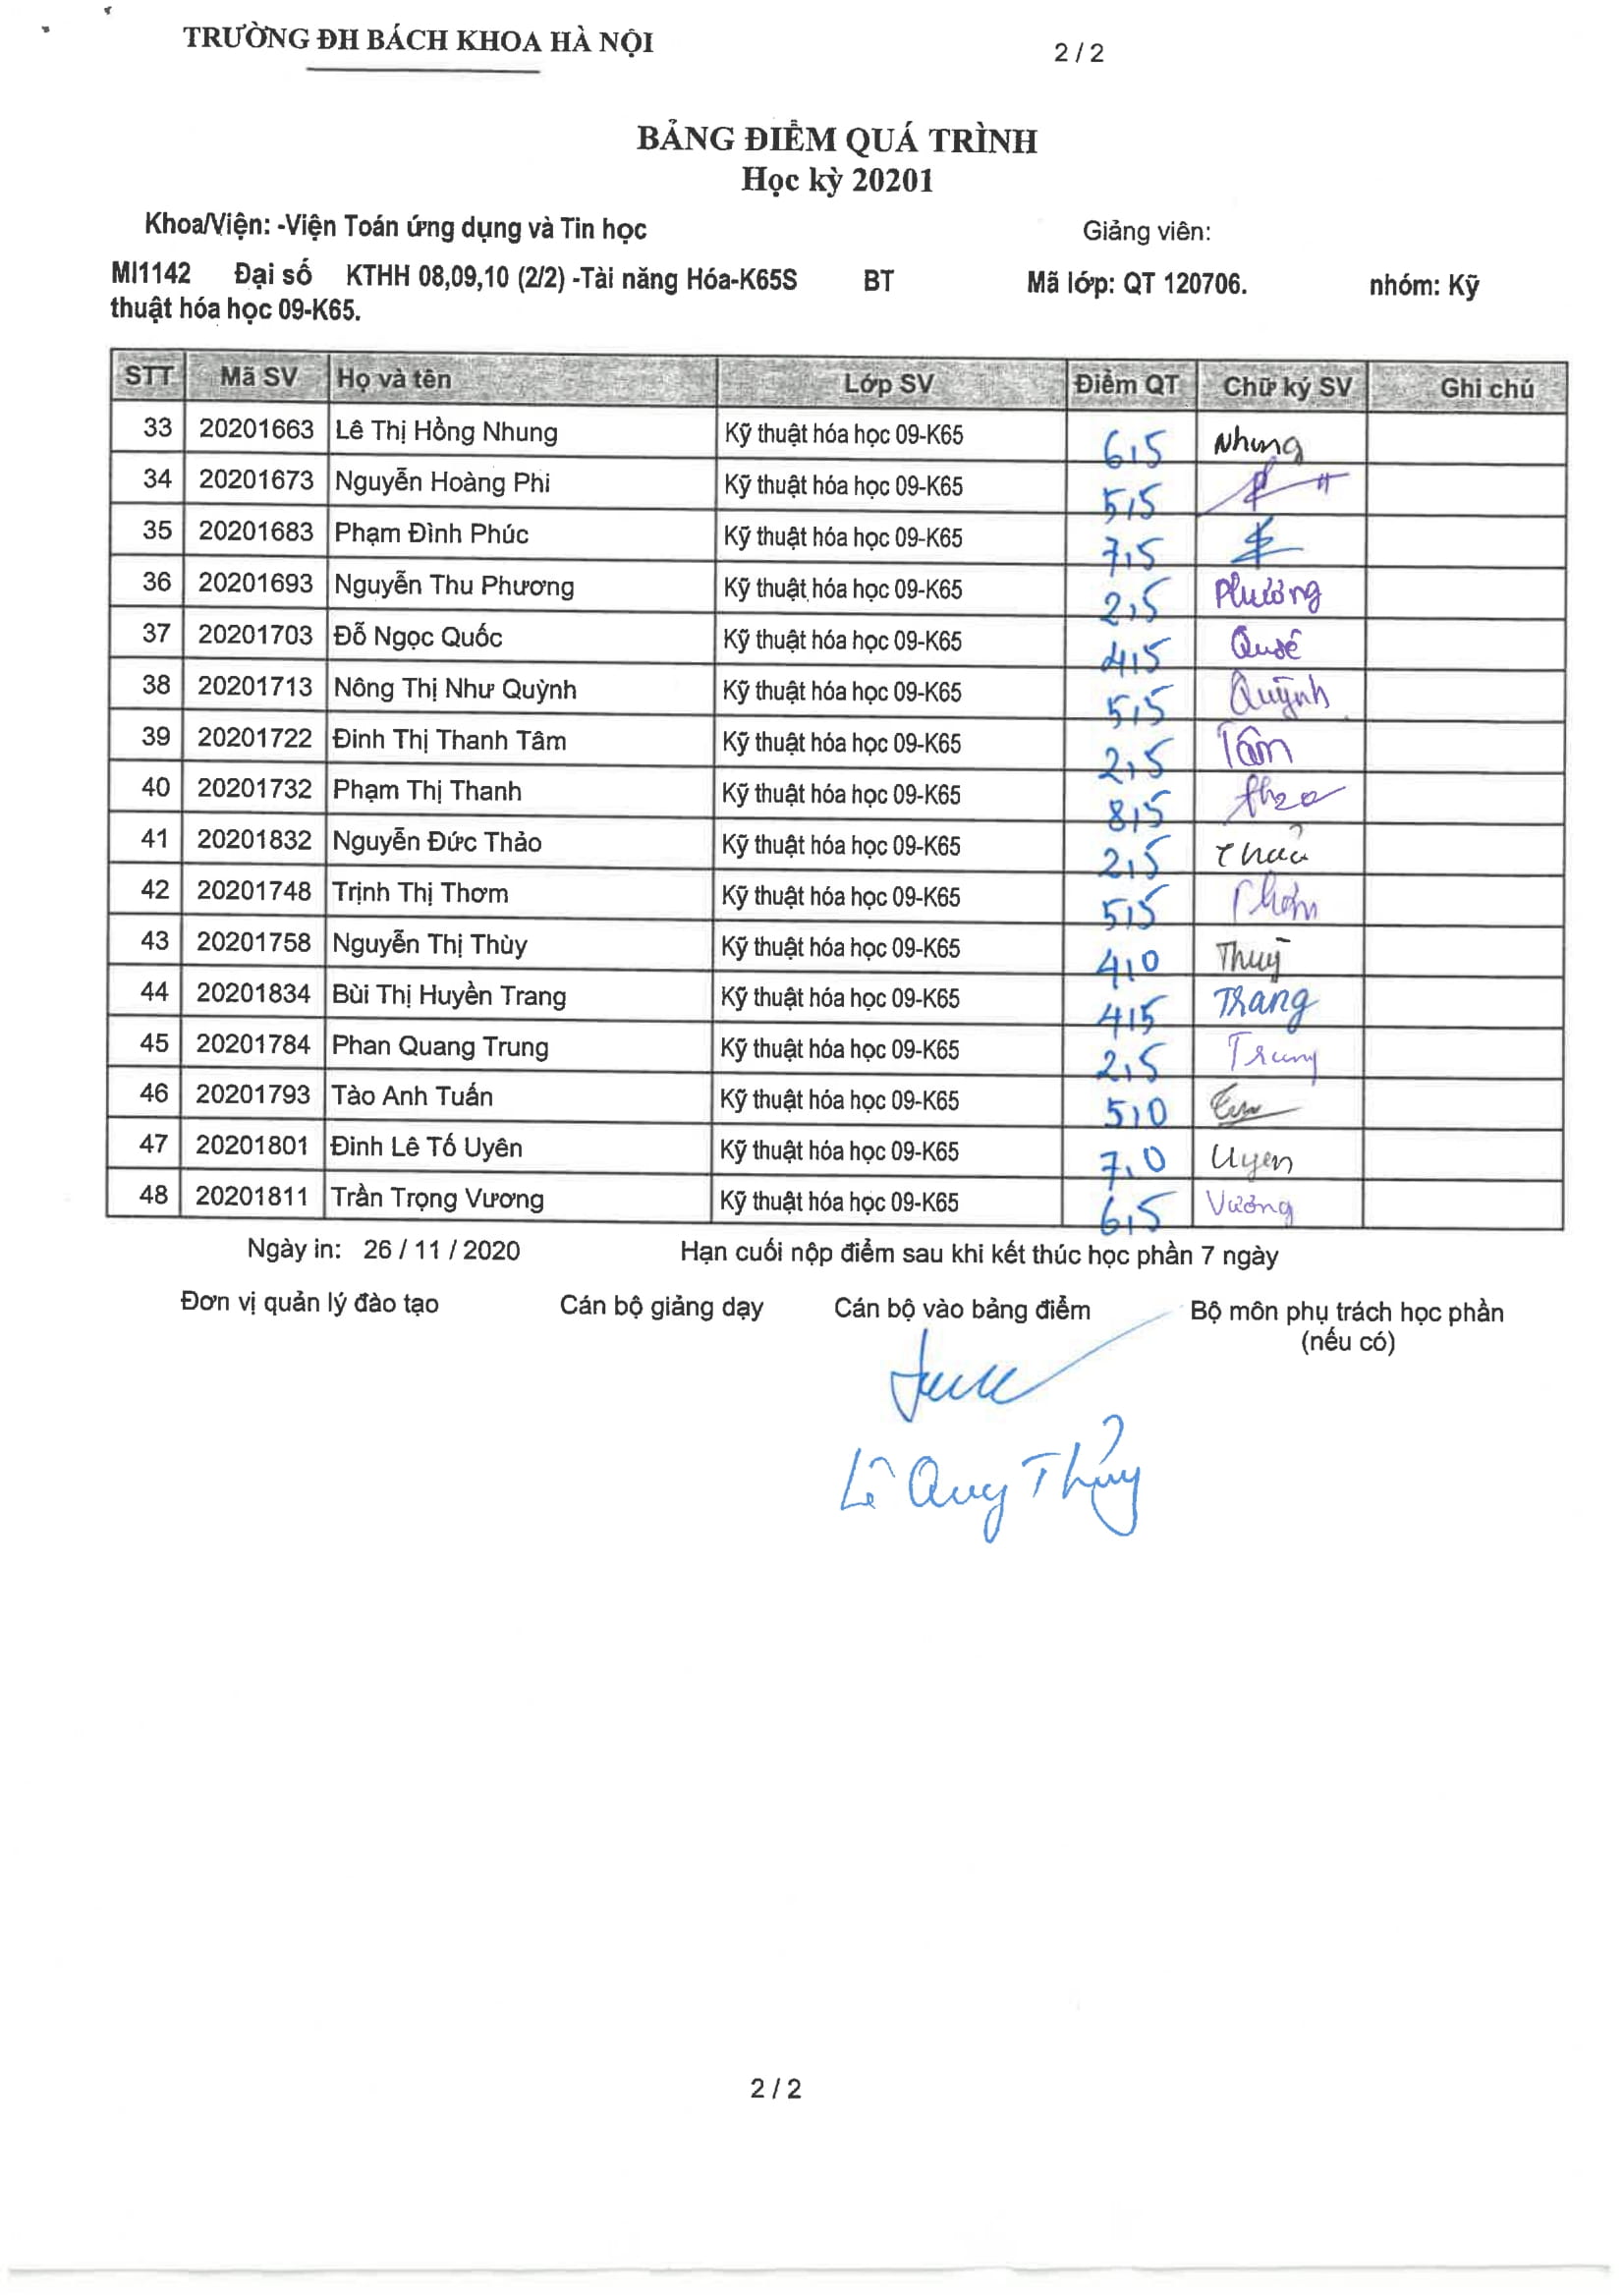 TRƯỜNG ĐH BÁCH KHOA HÀ NỘI 2 / 2
BẢNG ĐIỂM QUÁ TRÌNH
Học kỳ 20201
Khoa/Viện: -Viện Toán ứng dụng và Tin học Giảng viên:
MI1142 Đại số KTHH 08,09,10 (2/2) -Tài năng Hóa-K65S BT Mã lớp: QT 120706. nhóm: Kỹ
thuật hóa học 09-K65.
STT Mã SV Họ và tên Lớp SV Điểm QT Chữ ký SV Ghi chú
33 20201663 Lê Thị Hồng Nhung Kỹ thuật hóa học 09-K65 6,5 Nhung
34 20201673 Nguyễn Hoàng Phi Kỹ thuật hóa học 09-K65 5,5
35 20201683 Phạm Đình Phúc Kỹ thuật hóa học 09-K65 7,5
36 20201693 Nguyễn Thu Phương Kỹ thuật hóa học 09-K65 2,5 Phương
37 20201703 Đỗ Ngọc Quốc Kỹ thuật hóa học 09-K65 4,5 Quốc
38 20201713 Nông Thị Như Quỳnh Kỹ thuật hóa học 09-K65 5,5 Quỳnh
39 20201722 Đinh Thị Thanh Tâm Kỹ thuật hóa học 09-K65 2,5 Tâm
40 20201732 Phạm Thị Thanh Kỹ thuật hóa học 09-K65 8,5
41 20201832 Nguyễn Đức Thảo Kỹ thuật hóa học 09-K65 2,5 Thảo
42 20201748 Trịnh Thị Thơm Kỹ thuật hóa học 09-K65 5,5 Thơm
43 20201758 Nguyễn Thị Thùy Kỹ thuật hóa học 09-K65 4,0 Thuỳ
44 20201834 Bùi Thị Huyền Trang Kỹ thuật hóa học 09-K65 4,5 Trang
45 20201784 Phan Quang Trung Kỹ thuật hóa học 09-K65 2,5 Trung
46 20201793 Tào Anh Tuấn Kỹ thuật hóa học 09-K65 5,0
47 20201801 Đinh Lê Tố Uyên Kỹ thuật hóa học 09-K65 7,0 Uyen
48 20201811 Trần Trọng Vương Kỹ thuật hóa học 09-K65 6,5 Vương
Ngày in: 26 / 11 / 2020 Hạn cuối nộp điểm sau khi kết thúc học phần 7 ngày
Đơn vị quản lý đào tạo Cán bộ giảng dạy Cán bộ vào bảng điểm Bộ môn phụ trách học phần
(nếu có)
Lê Quy Thủy
2 / 2